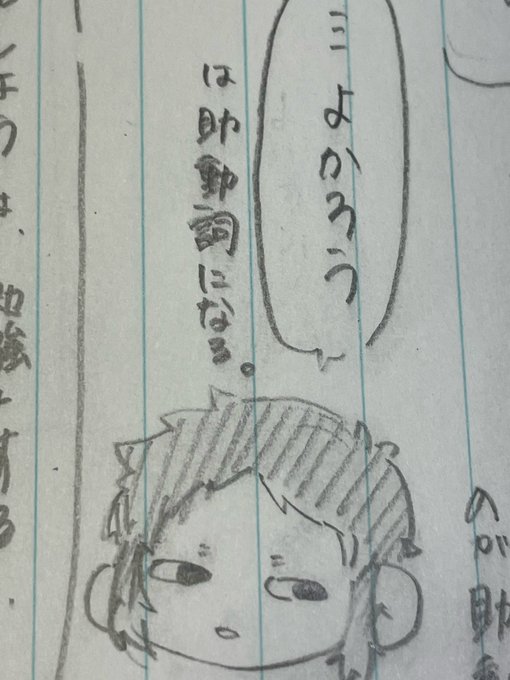 のが助
ミ よかろう
は助動詞になる。
しようは、勉強をする